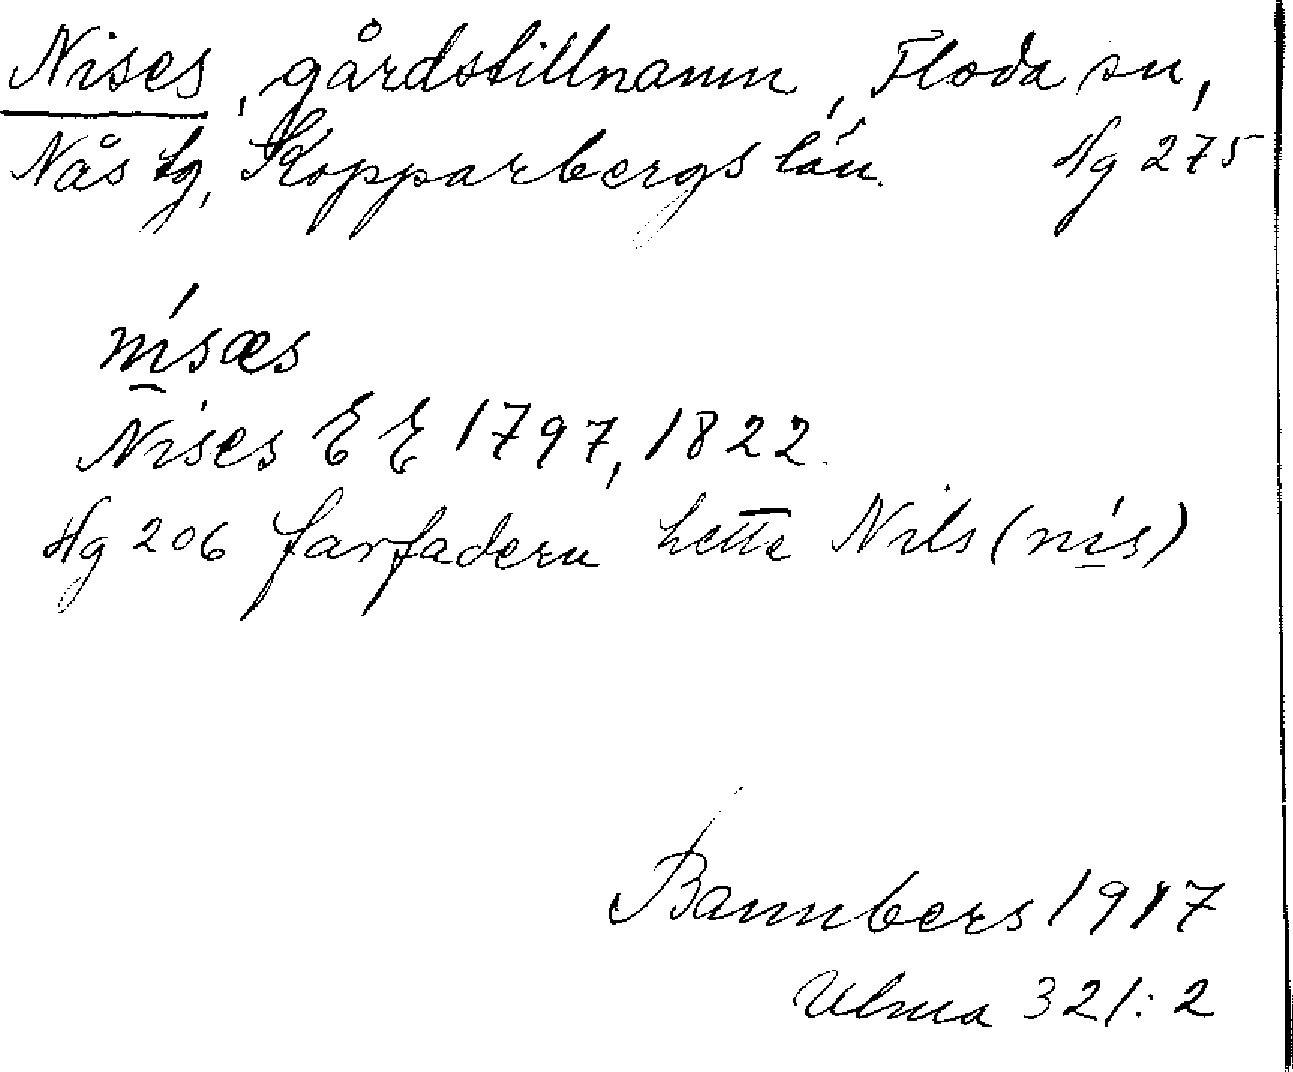 Nises, gårdstillnamn, Floda sn,
Nås tg, Kopparbergs län. Hg 275
nísæs
Nises E E 1797, 1822.
Hg 206 farfadern hette Nils (nís)
Bannbers 1917
Ulma 321:2